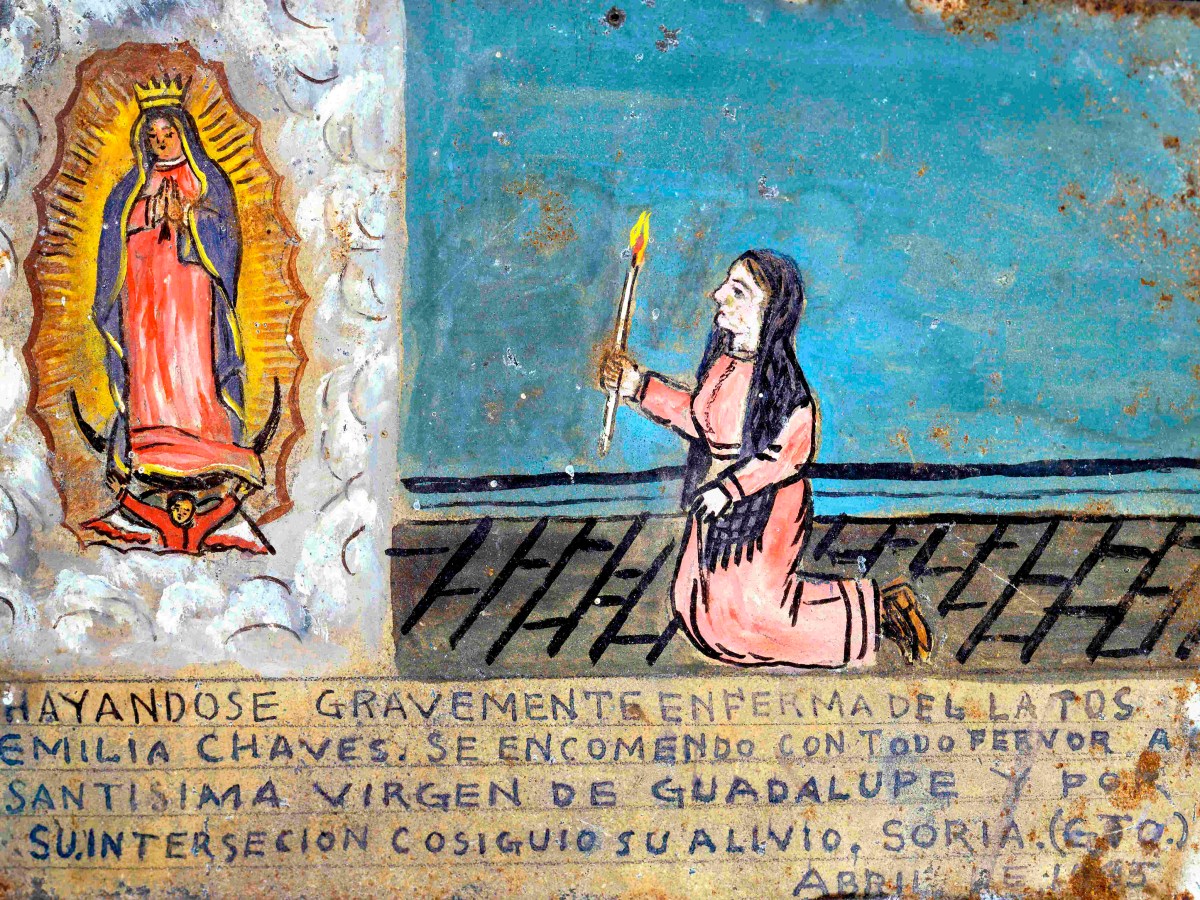 HAYANDOSE GRAVEMENTE ENFERMA DEL LA TOS
EMILIA CHAVES. SE ENCOMENDO CON TODO FERVOR A
SANTISIMA VIRGEN DE GUADALUPE Y POR
SU.INTERSECION COSIGUIO SU ALIVIO. SORIA.(GTO.)
ABRIL DE